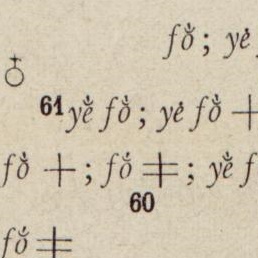 fǒ̀; yė
♁
61 yě̀ fǒ̀; yė fǒ̀ +
fǒ̀ +; fǒ́ ‡; yě̀ f
60
fǒ́ ‡